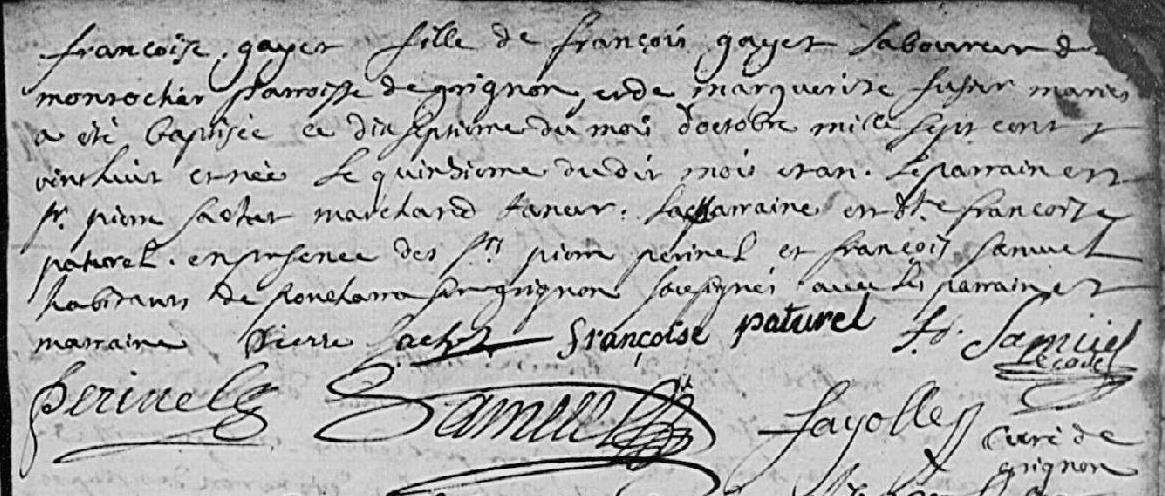 françoise gayet fille de françois gayet laboureur de
monrocher parroisse de grignon, et de marguerite mariés
a été baptisée ce dixseptieme du mois d'octobre mille sept cent
vint huit et née le quinzieme dudit mois et an. Le parrain est
sr. pierre sachet marchand taneur. la marraine est dlle françoise
paturel. en presence des srs pierre perinel et françois samuel
habitants de pontcharra sur grignon soussignés avec les parrain et
marraine Pierre Sachet françoise paturel f. Samuel
Perinel Samuel fayolle curé de
grignon